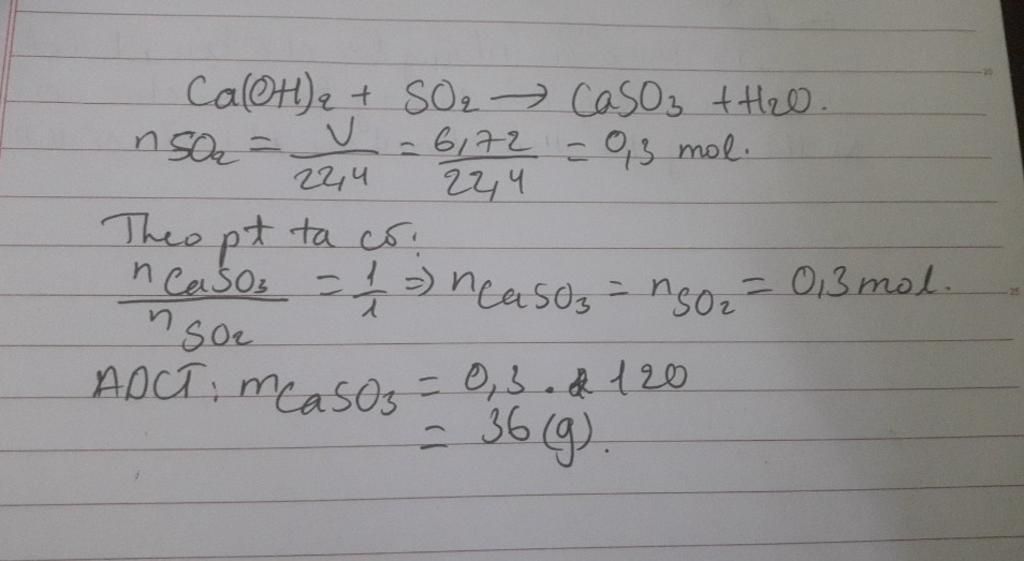 Ca(OH)2 + SO2 → CaSO3 + H2O.
nSO2 = V/22,4 = 6,72/22,4 = 0,3 mol.
Theo pt ta có:
nCaSO3/nSO2 = 1/1 => nCaSO3 = nSO2 = 0,3 mol.
ADCT: mCaSO3 = 0,3 . 120
= 36 (g).